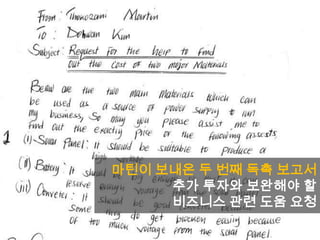 From: Thenorami Martin
To : Dohwan Kim
Subject: Request For the help to find
out the cost of two major Materials
Below are the two main Materials which can
be used as a source of power supply to run
my business, So may you please assist me to
find out the exactly price of the following assests
1 (i) Solar Panel: It should be suitable to produce a
high voltage
(ii) Battery: It should
reserve enough
(iii) Converter: It
should be good
Some
do get broken easily because
of too much voltage from the solar panel.
마틴이 보내온 두 번째 독촉 보고서
추가 투자와 보완해야 할
비즈니스 관련 도움 요청